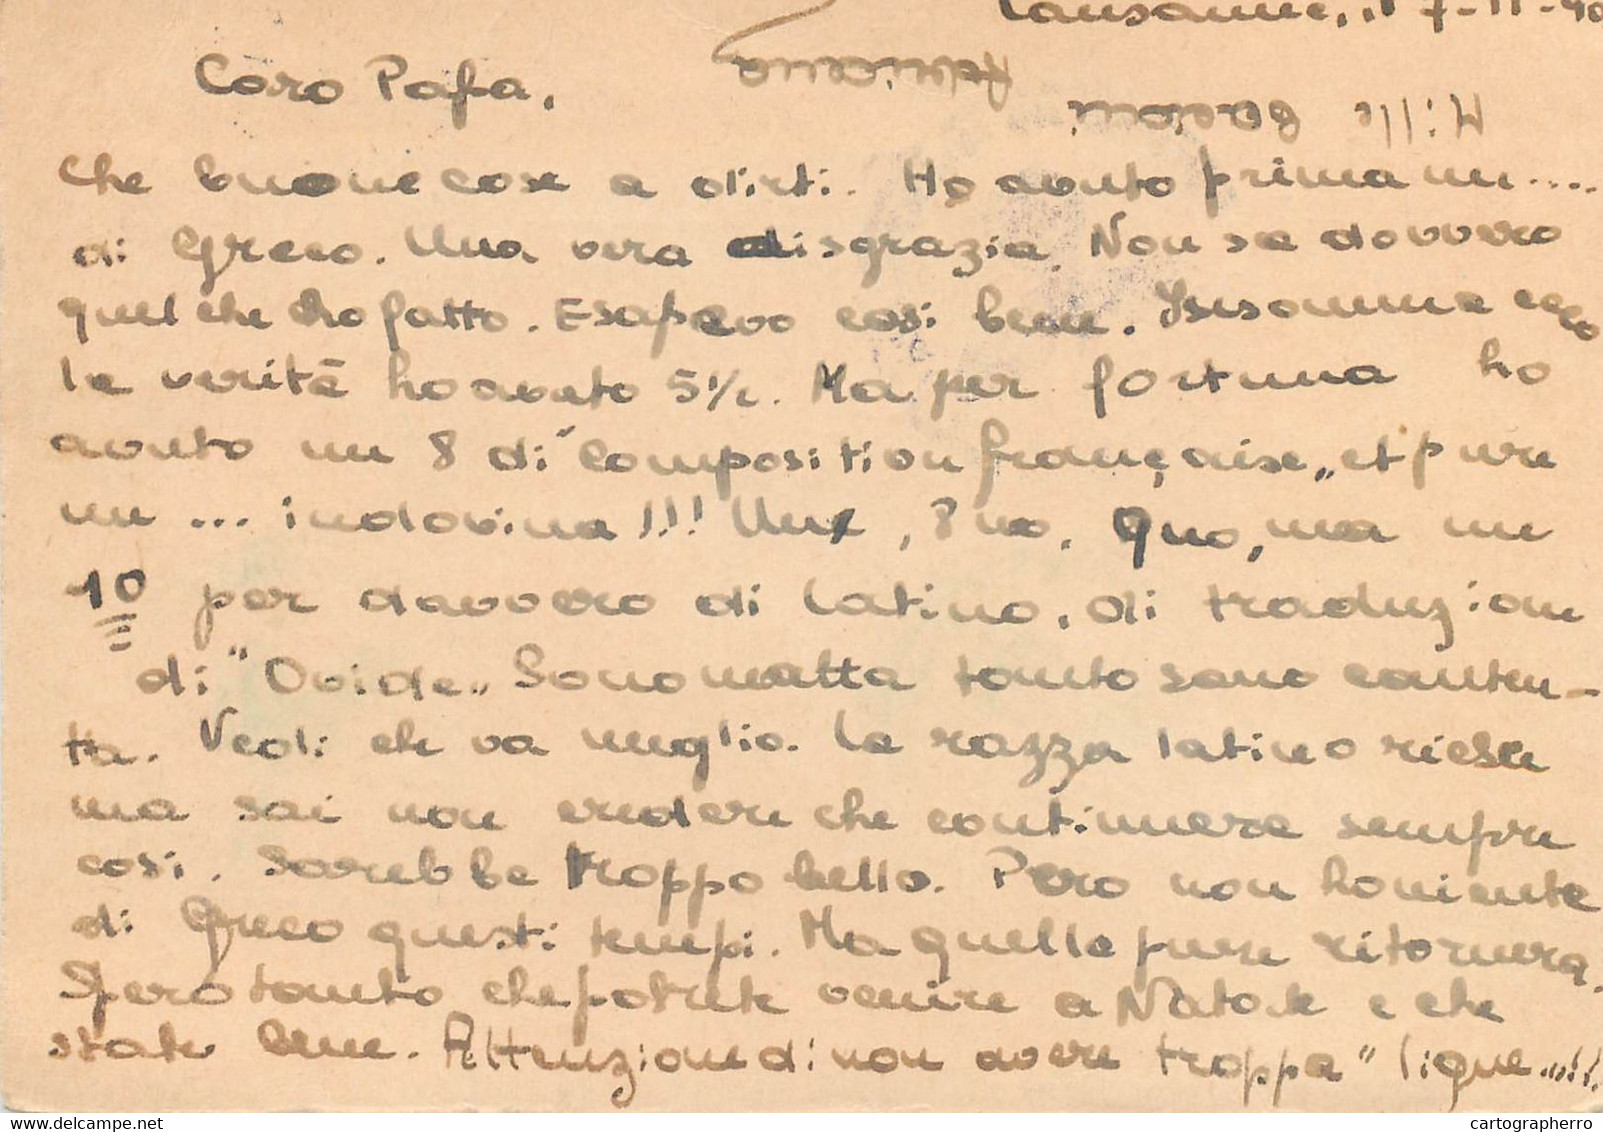 Lausanne, il 7-11-40
Caro Papa,
Mille bacioni
Che buone cose a dirti. Ho avuto prima un....
di Greco. Una vera disgrazia. Non so davvero
quel che ho fatto. E sapevo così bene. Insomma ecco
la verità ho avuto 5 1/2. Ma per fortuna ho
avuto un 8 di "composition française" et pure
un ... indovina!!! Un, 8 no. 9 no, ma un
10 per davvero di latino, di traduzione
di "Ovide". Sono matta tanto sono conten-
ta. Vedi che va meglio. La razza latino riesce
ma sai non credere che continuera sempre
così. Sarebbe troppo bello. Pero non ho niente
di Greco questi tempi. Ma quello pure ritornera.
Spero tanto che potrete venire a Natale e che
state bene. Attenzione di non avere troppa "ligne...!!.
www.delcampe.net
cartographerro